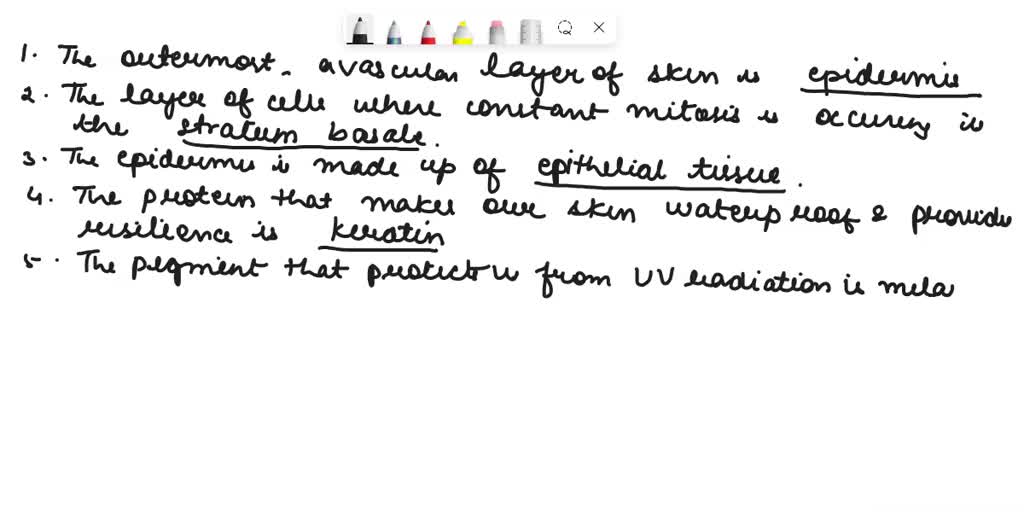 1. The outermost, avascular layer of skin is epidermis
2. The layer of cells where constant mitosis is occuring is
the stratum basale.
3. The epidermis is made up of epithelial tissue.
4. The protein that makes our skin waterproof & provide
resilience is keratin
5. The pigment that protects us from UV radiation is mela